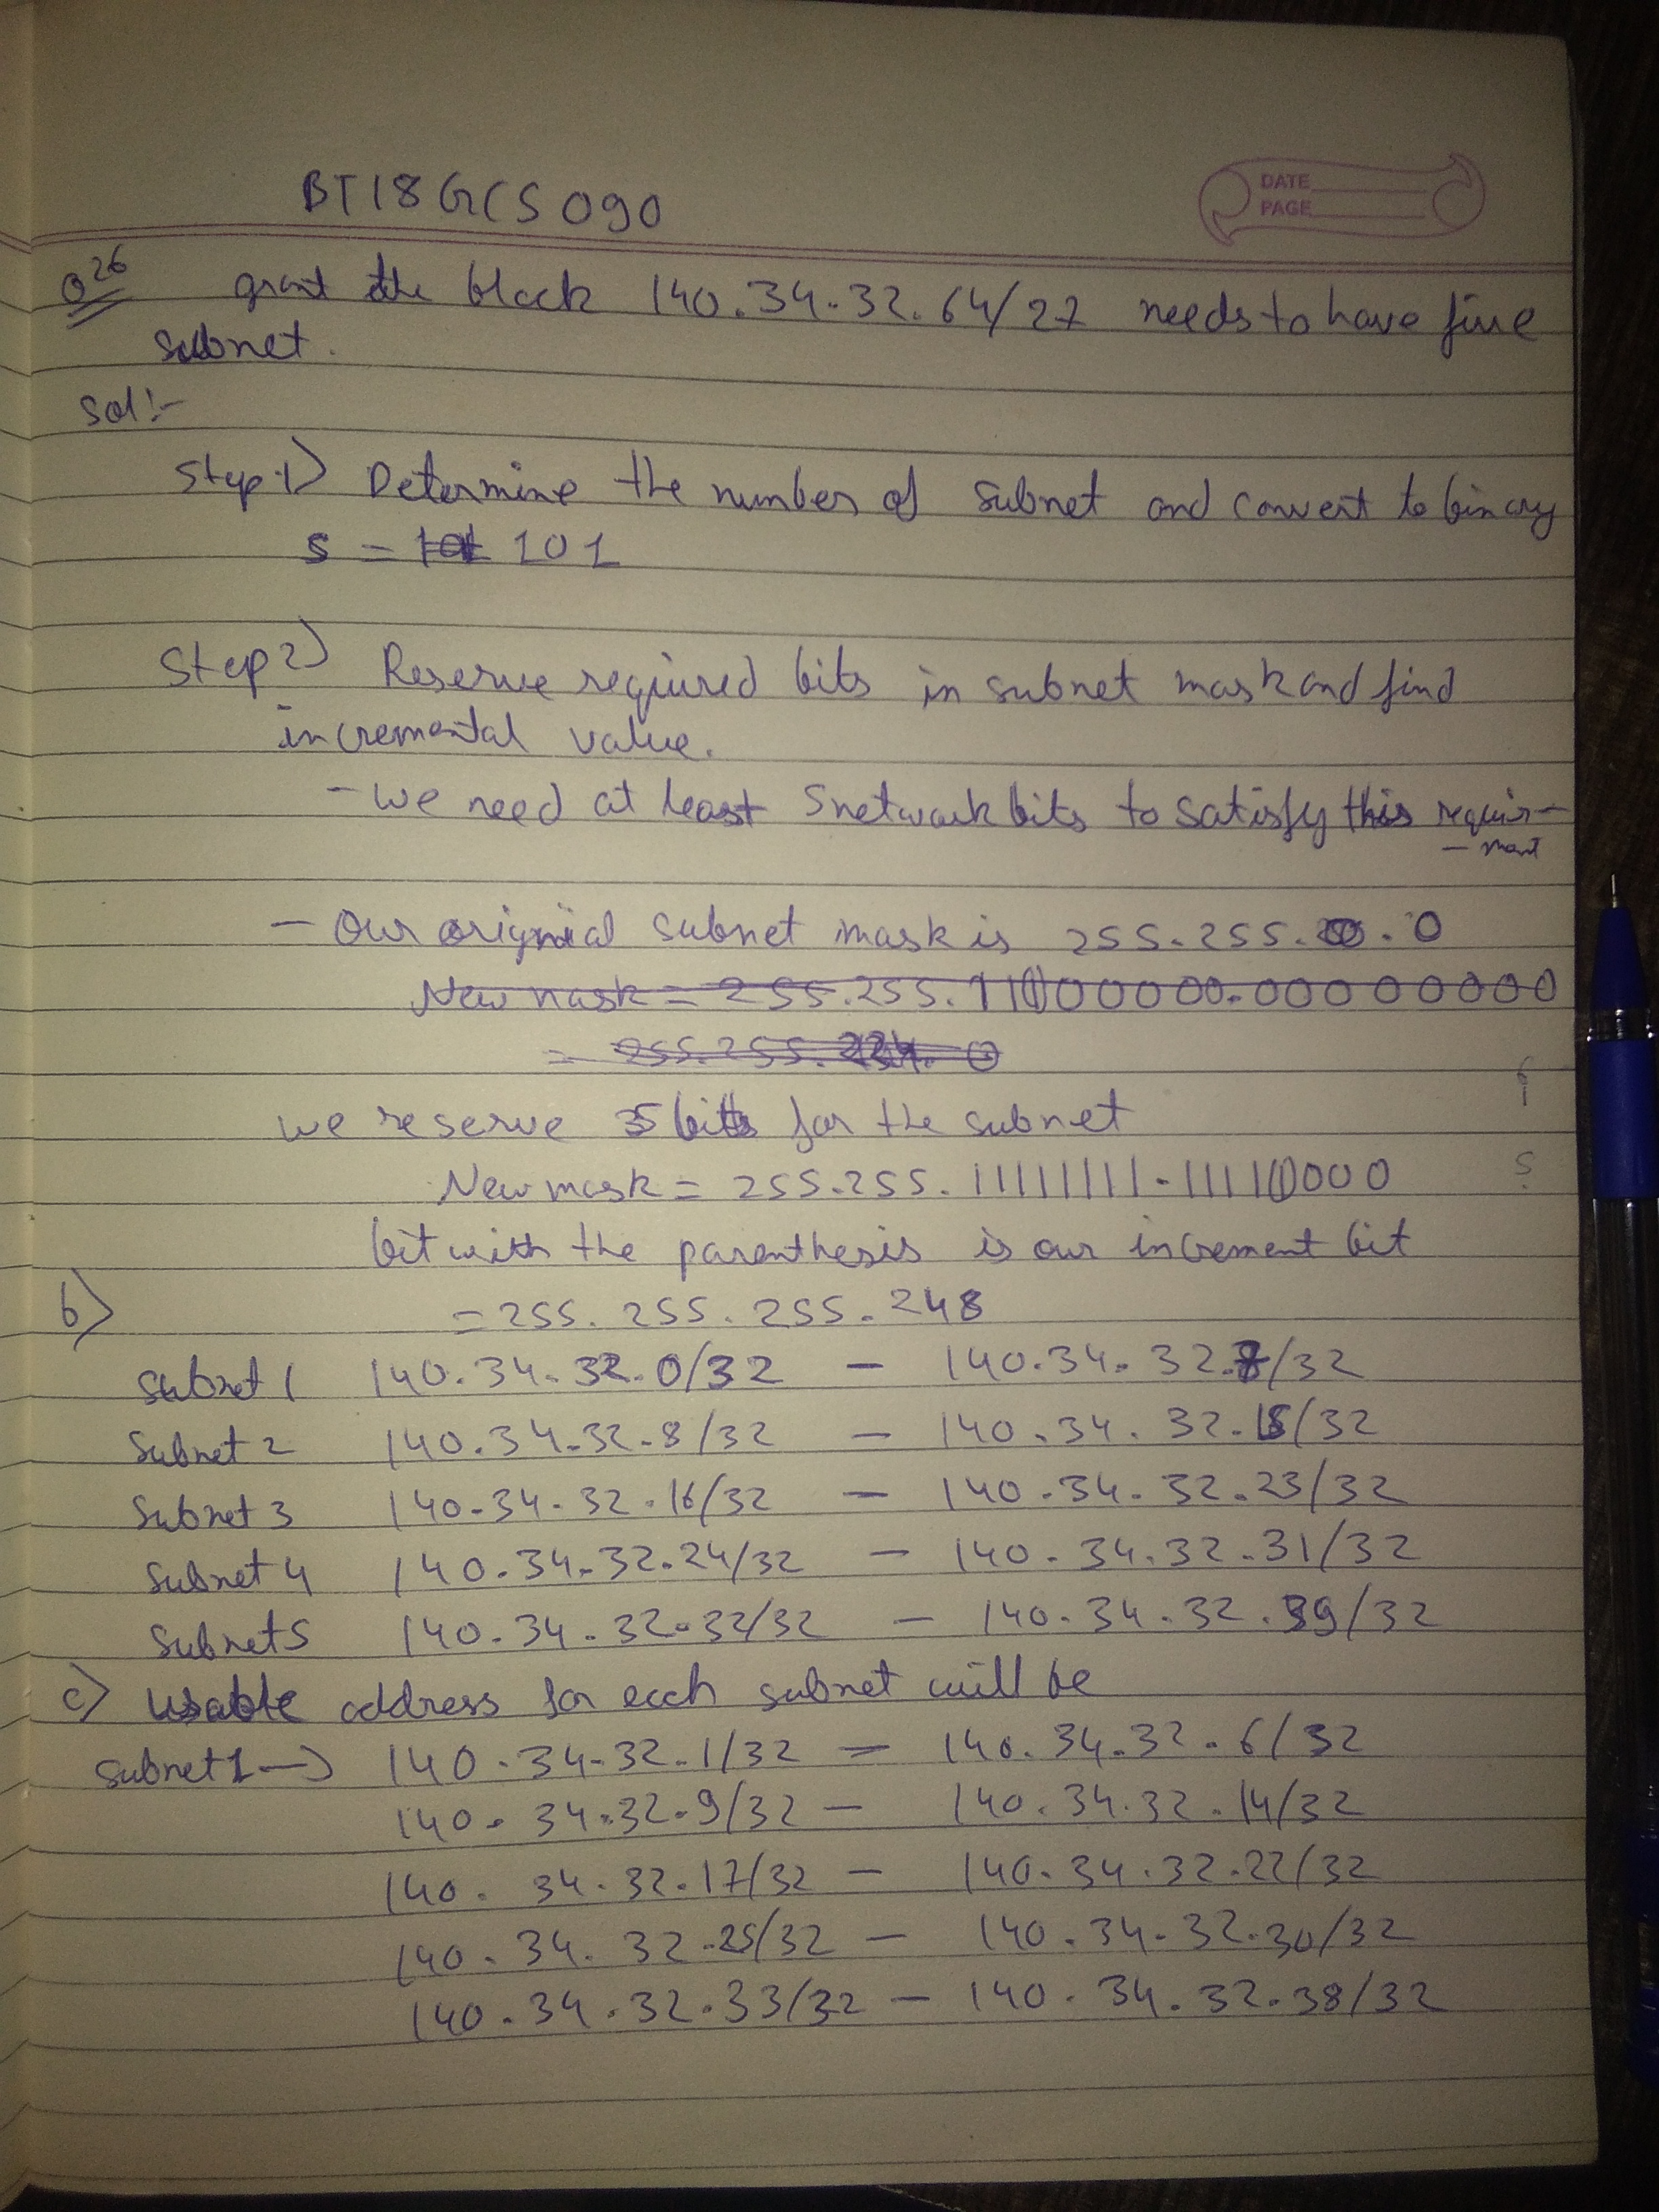 BT18GCS090
DATE
PAGE
Q26 grant the block 140.34.32.64/27 needs to have five
subnet.
Sol:-
Step 1) Determine the number of subnet and convert to binary
5 = 101
Step 2) Reserve required bits in subnet mask and find
incremental value.
- We need at least 5 network bits to satisfy this requir-
- ment
- Our original subnet mask is 255.255.0.0
New mask = 255.255.11100000.00000000
= 255.255.224.0
we reserve 5 bits for the subnet
New mask = 255.255.11111111.1111(1)000
bit with the parenthesis is our increment bit
b) = 255.255.255.248
Subnet 1 140.34.32.0/32 - 140.34.32.7/32
Subnet 2 140.34.32.8/32 - 140.34.32.15/32
Subnet 3 140.34.32.16/32 - 140.34.32.23/32
Subnet 4 140.34.32.24/32 - 140.34.32.31/32
Subnet 5 140.34.32.32/32 - 140.34.32.39/32
c) Usable address for each subnet will be
Subnet 1 → 140.34.32.1/32 - 140.34.32.6/32
140.34.32.9/32 - 140.34.32.14/32
140.34.32.17/32 - 140.34.32.22/32
140.34.32.25/32 - 140.34.32.30/32
140.34.32.33/32 - 140.34.32.38/32